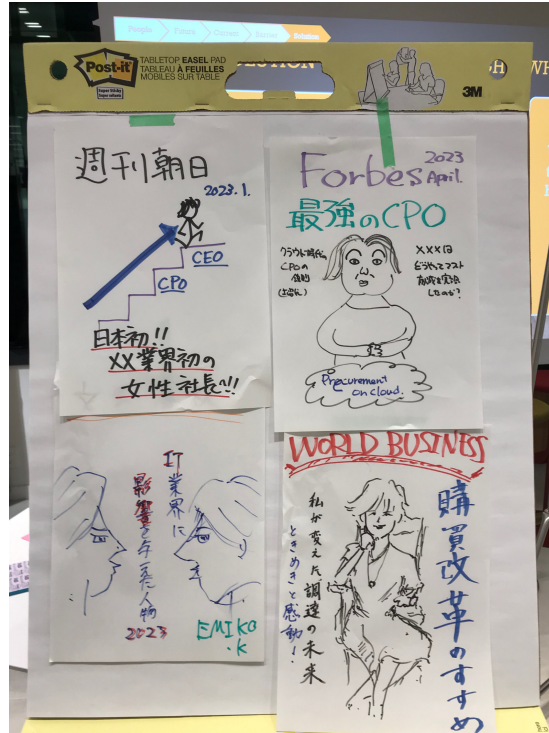 People
Future
Current
Barrier
Solution
Post-it
Super Sticky
TABLETOP EASEL PAD
TABLEAU À FEUILLES
MOBILES SUR TABLE
3M
WH
週刊朝日
2023.1.
CEO
CPO
日本初!!
XX業界初の
女性社長~!!
Forbes
2023
April.
最強のCPO
クラウド時代の
CPOの
XXXは
どうやってコスト
削減を実現
したのか?
Procurement
on Cloud.
IT業界に
影響を与えた人物
2023
EMIKO
.K
WORLD BUSINESS
購買改革のすすめ
私が変えた調達の未来
ときめきと感動!